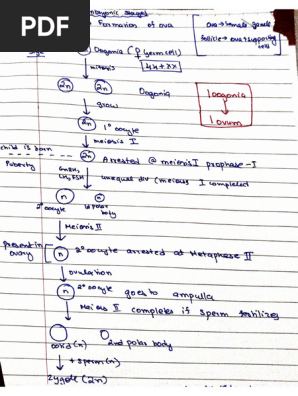 PDF
Embryonic stages
Formation of ova
Ova → female gamete
follicle → ova + supporting cell
Stage
Oogonia (♀ germ cell)
mitosis
44 + XX
2n
2n
Oogonia
1 oogonia
↓
1 ovum
grow
2n
1° oocyte
meiosis I
child is born
2n
Arrested @ meiosis I prophase-I
Puberty
GnRH,
LH, FSH
unequal div (meiosis I completed
n
n
2° oocyte
1st polar
body
Meiosis II
present in
ovary
n
2° oocyte arrested at Metaphase II
ovulation
n
2° oocyte goes to ampulla
Meiosis II completes if sperm fertilizes
ovum (n)
2nd polar body
+ sperm (n)
zygote (2n)